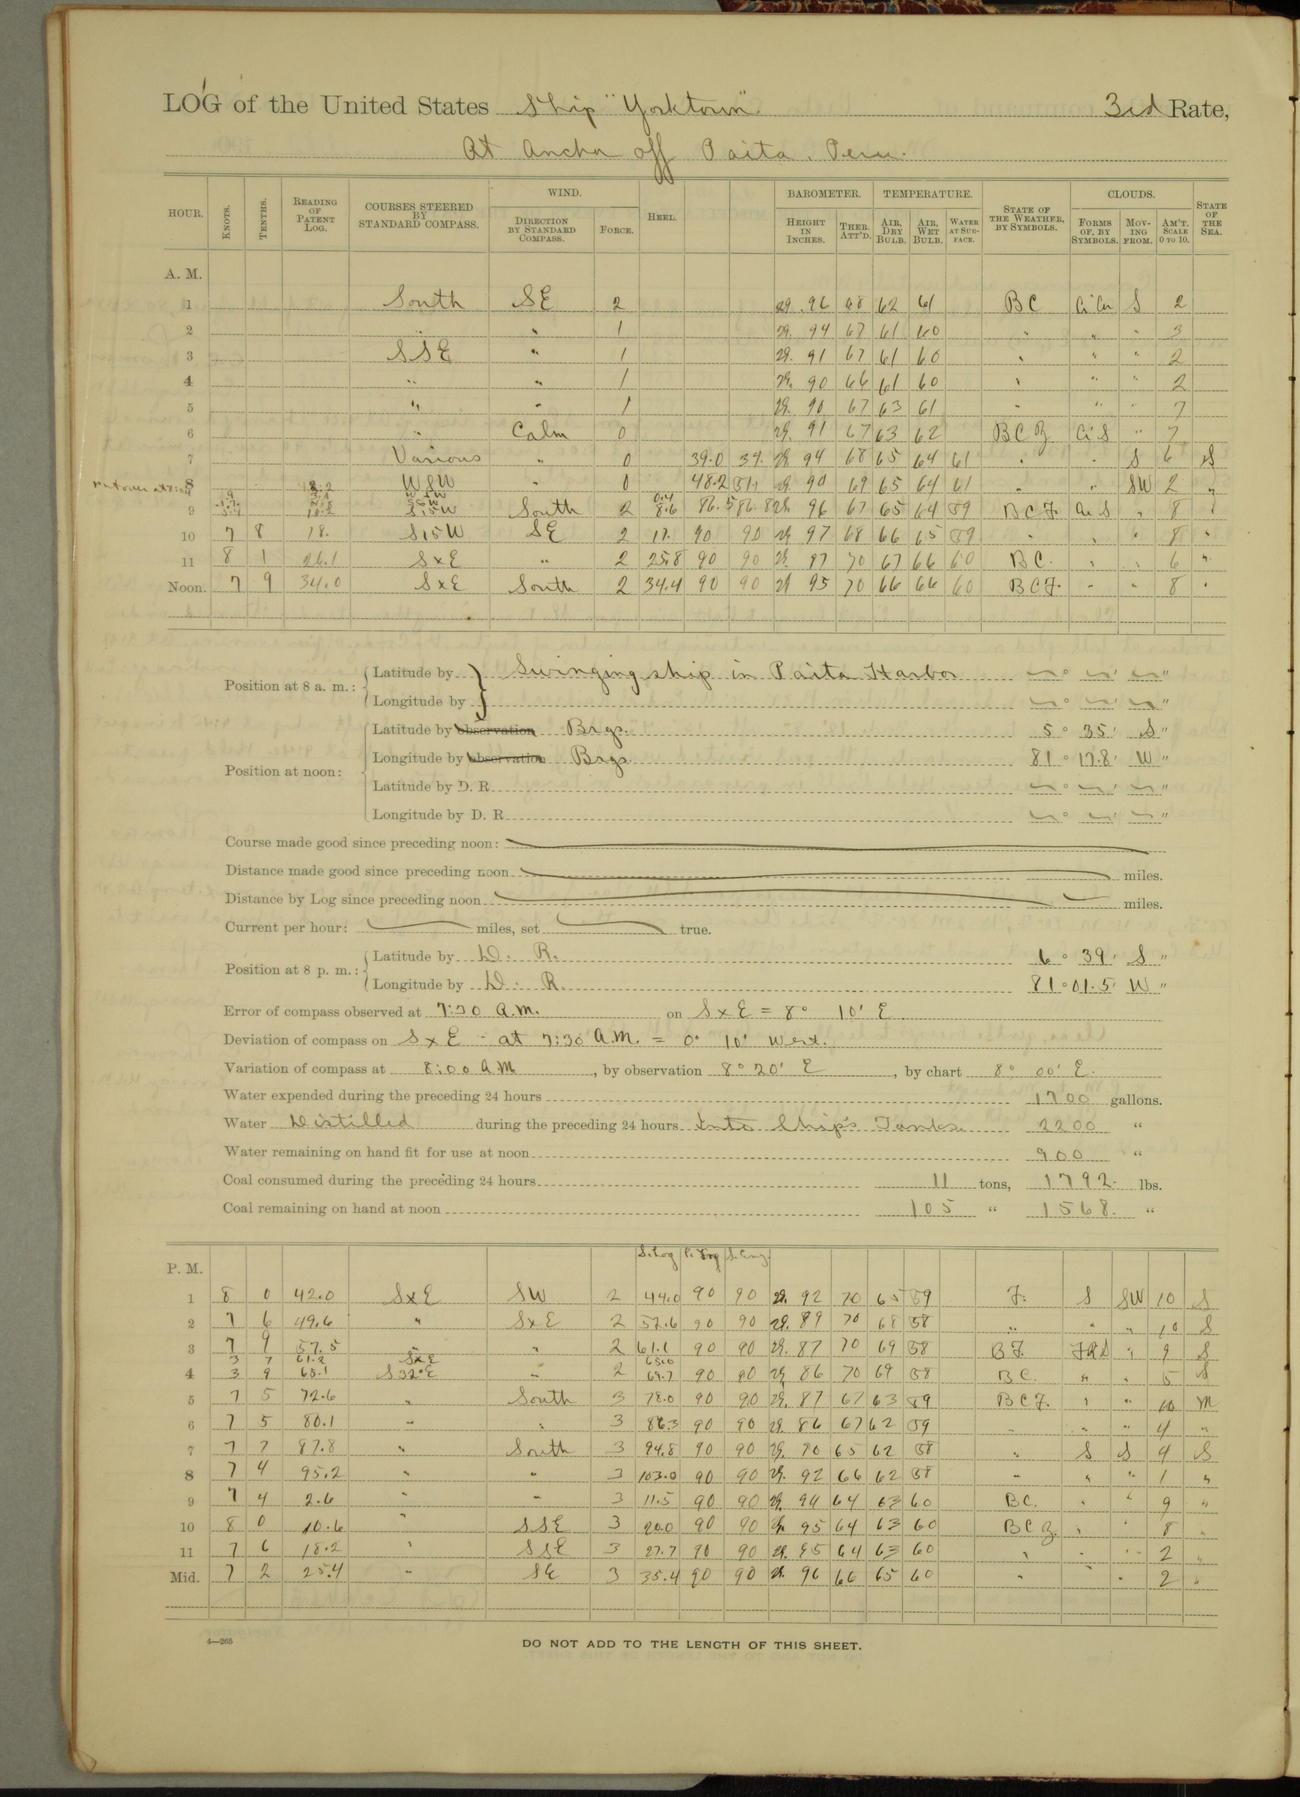 LOG of the United States Ship "Yorktown" 3rd Rate,
At Anchor off Paita, Peru.
HOUR. KNOTS. TENTHS. READING OF PATENT LOG. COURSES STEERED BY STANDARD COMPASS. WIND. DIRECTION BY STANDARD COMPASS. FORCE. HEEL. BAROMETER. HEIGHT IN INCHES. THER. ATT'D. TEMPERATURE. AIR, DRY BULB. AIR, WET BULB. WATER AT SURFACE. STATE OF THE WEATHER, BY SYMBOLS. CLOUDS. FORMS OF, BY SYMBOLS. MOVING FROM. AM'T. SCALE 0 TO 10. STATE OF THE SEA.
A. M.
1 South SE 2 29.96 68 62 61 BC Ci Cu S 2
2 " " 1 29.94 67 61 60 " " " 3
3 SSE " 1 29.91 67 61 60 " " " 2
4 " " 1 29.90 66 61 60 " " " 2
5 " " 1 29.90 67 63 61 " " " 7
6 " Calm 0 29.91 67 63 62 BCZ Ci S " 7
7 Various " 0 39.0 39. 29 94 68 65 64 61 " " S 6 S
8 WSW " 0 48.2 51, 29 90 69 65 64 61 " " SW 2 "
9 S15W South 2 8.6 86.5 86.8 29 96 67 65 64 59 BCF. Cu S " 8 "
10 7 8 18. S15W SE 2 17. 90 90 29 97 68 66 65 59 " " " 8 "
11 8 1 26.1 SxE " 2 25.8 90 90 29 97 70 67 66 60 BC. " " 6 "
Noon. 7 9 34.0 SxE South 2 34.4 90 90 29 95 70 66 66 60 BCF. " " 8 "
Position at 8 a. m.: Latitude by Swinging ship in Paita Harbor
Longitude by
Position at noon: Latitude by observation Brgs. 5° 35' S"
Longitude by observation Brgs 81° 17.8' W"
Latitude by D. R.
Longitude by D. R.
Course made good since preceding noon:
Distance made good since preceding noon miles.
Distance by Log since preceding noon miles.
Current per hour: miles, set true.
Position at 8 p. m.: Latitude by D. R. 6° 39' S"
Longitude by D. R. 81° 01.5' W"
Error of compass observed at 7:30 A.M. on SxE = 8° 10' E
Deviation of compass on SxE - at 7:30 A.M. = 0° 10' West.
Variation of compass at 8:00 AM, by observation 8° 20' E, by chart 8° 00' E.
Water expended during the preceding 24 hours 1700 gallons.
Water Distilled during the preceding 24 hours Into Ship's Tanks 2200 "
Water remaining on hand fit for use at noon 900 "
Coal consumed during the preceding 24 hours 11 tons, 1792. lbs.
Coal remaining on hand at noon 105 " 1568. "
P. M. S. Log P. Eng S. Eng.
1 8 0 42.0 SxE SW 2 44.0 90 90 29. 92 70 65 59 F. S SW 10 S
2 7 6 49.6 " SxE 2 52.6 90 90 29. 89 70 68 58 " " " 10 S
3 7 9 57.5 " " 2 61.1 90 90 29. 87 70 69 58 BF. " 9 S
3 7 61.2 SxE 65.0
4 3 9 65.1 S32°E " 2 69.7 90 90 29 86 70 69 58 BC. " " 5 S
5 7 5 72.6 " South 3 78.0 90 90 29. 87 67 63 59 BCF. " " 10 M
6 7 5 80.1 " " 3 86.3 90 90 29 86 67 62 59 " " " 4 "
7 7 7 87.8 " South 3 94.8 90 90 29. 90 65 62 58 " S S 4 S
8 7 4 95.2 " " 3 103.0 90 90 29. 92 66 62 58 " " " 1 "
9 7 4 2.6 " " 3 11.5 90 90 29. 94 64 63 60 BC. " " 9 "
10 8 0 10.6 " SSE 3 20.0 90 90 29. 95 64 63 60 BCZ " " 8 "
11 7 6 18.2 " SSE 3 27.7 90 90 29. 95 64 63 60 " " " 2 "
Mid. 7 2 25.4 " SE 3 35.4 90 90 29. 96 66 65 60 " " " 2 "
4—265
DO NOT ADD TO THE LENGTH OF THIS SHEET.